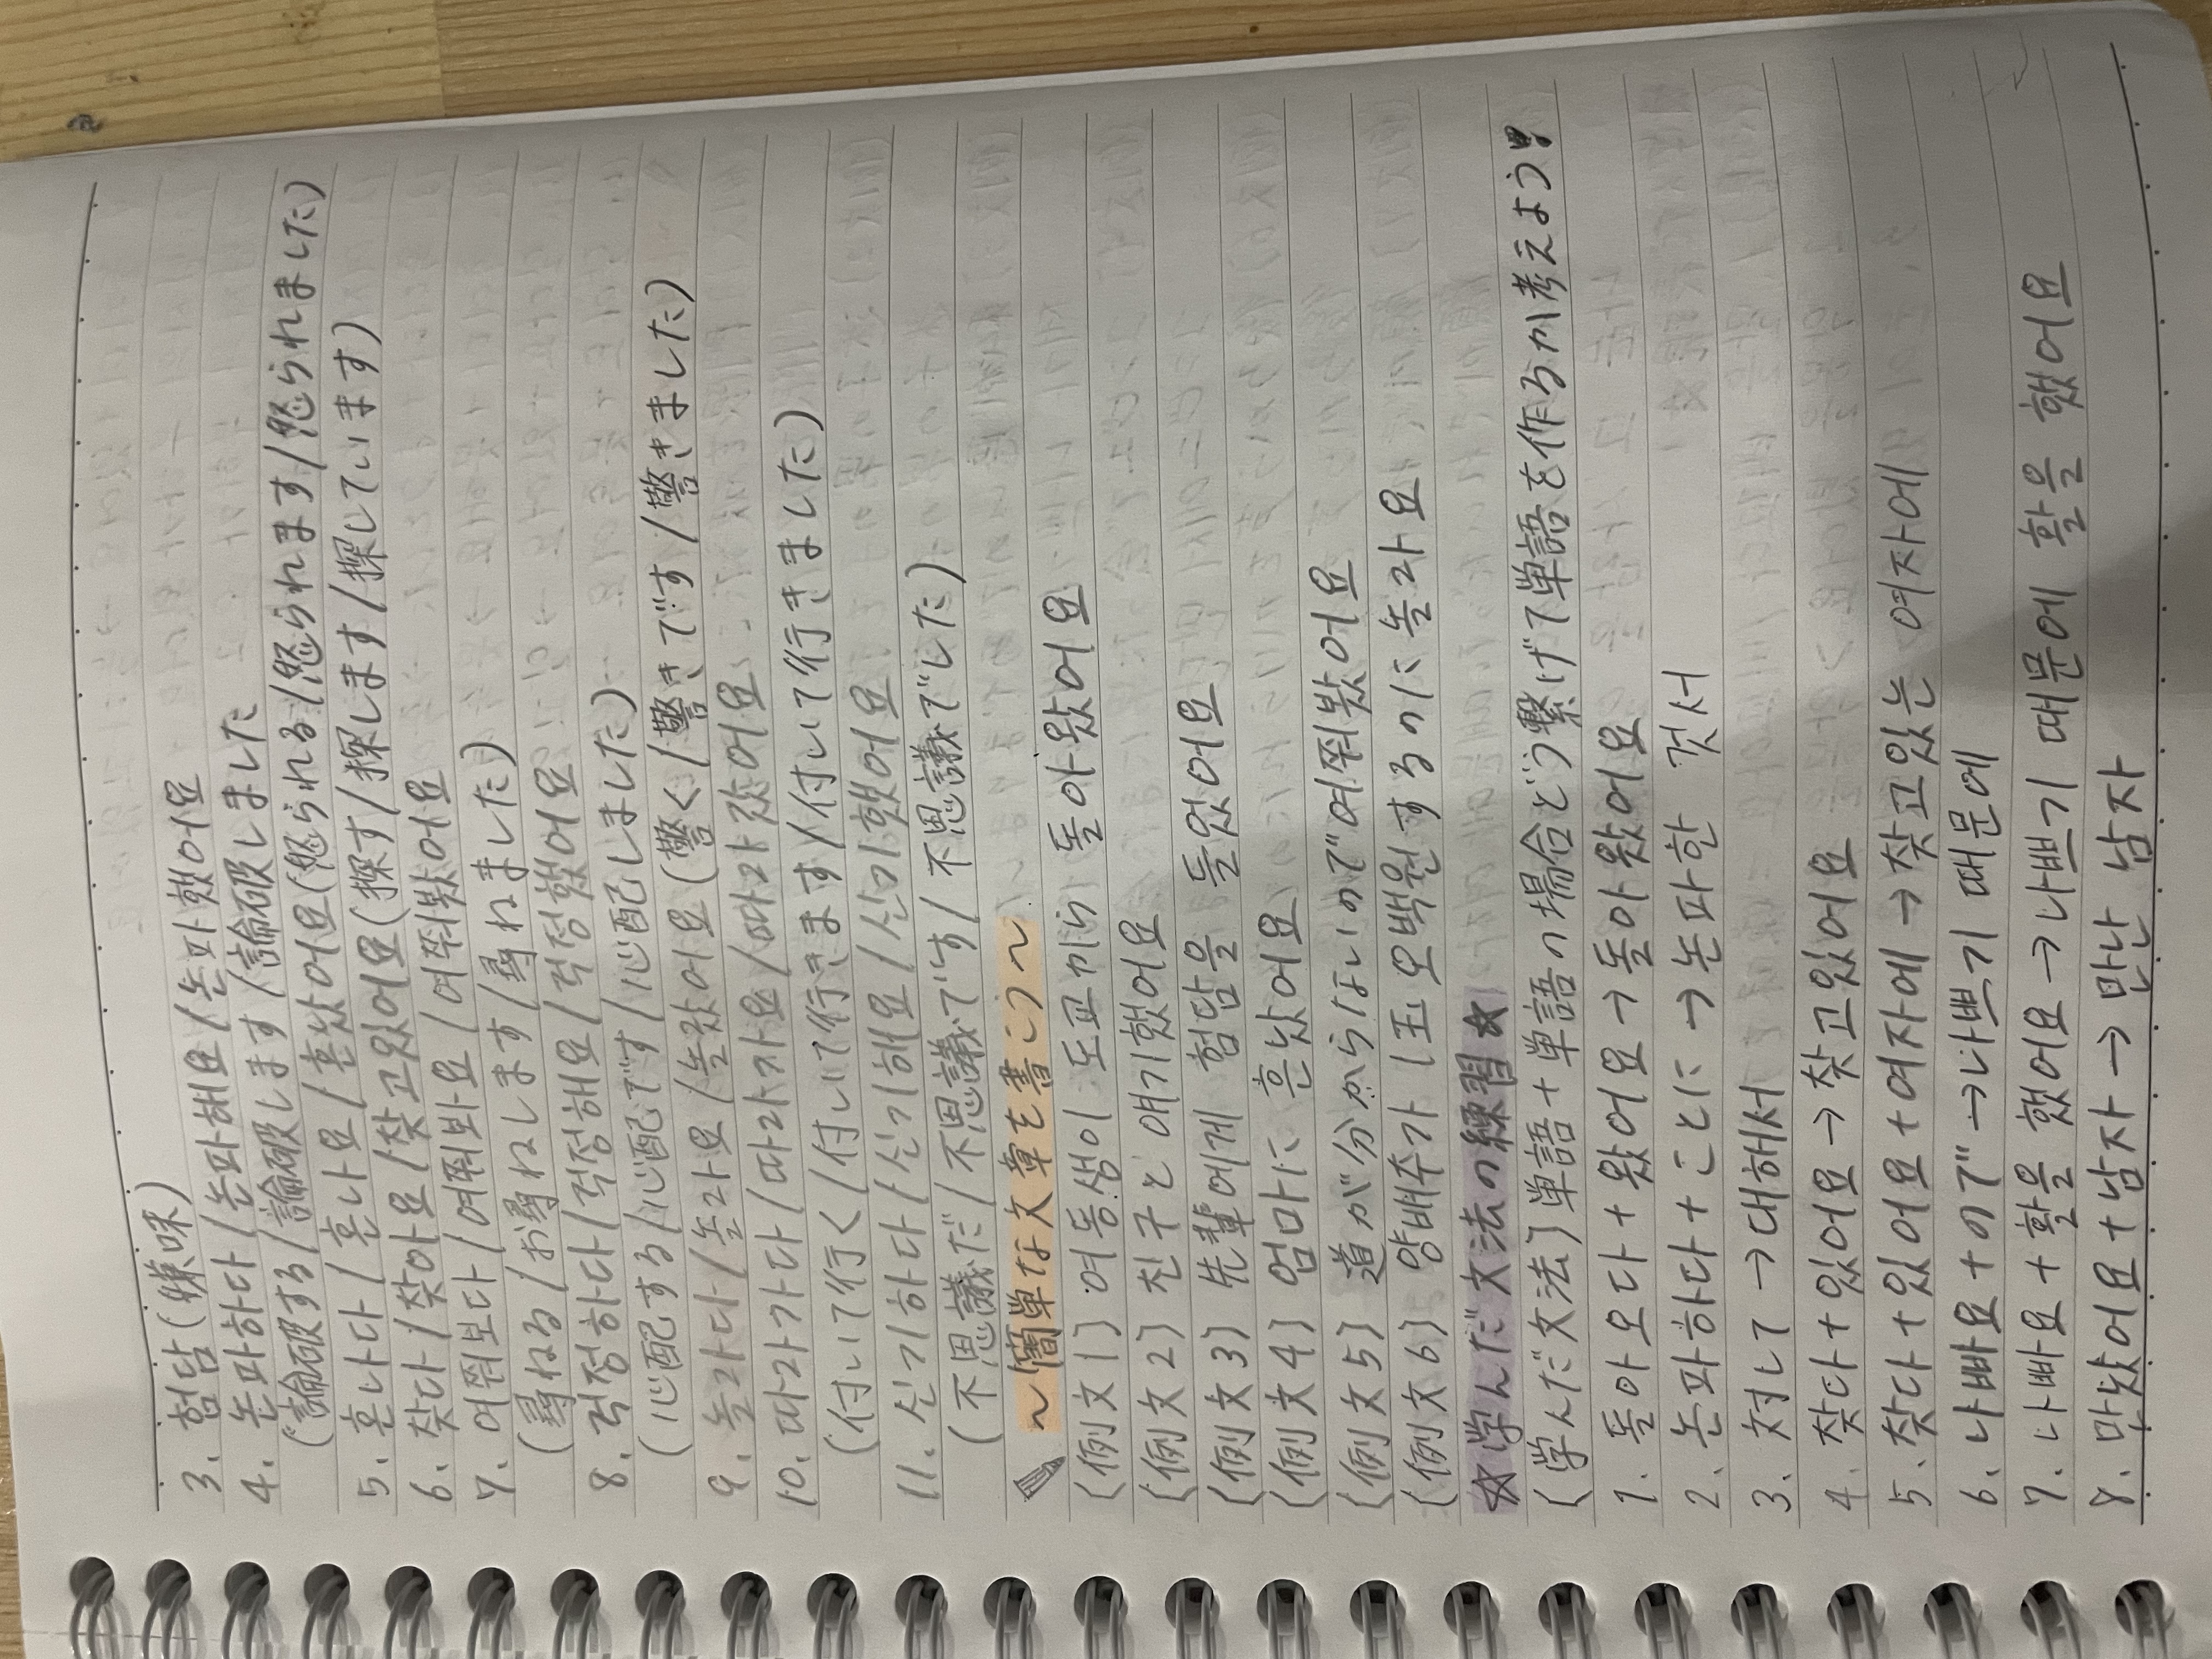 3. 험담(嫌味)
4. 논파하다/논파해요/논파했어요
(論破する/論破します/論破しました
5. 혼나다/혼나요/혼났어요(怒られる/怒られます/怒られました)
6. 찾다/찾아요/찾고있어요(探す/探します/探しています)
7. 여쭤보다/여쭤봐요/여쭤봤어요
(尋ねる/お尋ねします/尋ねました)
8. 걱정하다/걱정해요/걱정했어요
(心配する/心配です/心配しました)
9. 놀라다/놀라요/놀랐어요(驚く/驚きです/驚きました)
10. 따라가다/따라가요/따라갔어요
(付いて行く/付いて行きます/付いて行きました)
11. 신기하다/신기해요/신기했어요
(不思議だ/不思議です/不思議でした)
~簡単な文章を書こう~
(例文1) 여동생이 도쿄から 돌아왔어요
(例文2) 친구と 얘기했어요
(例文3) 先輩에게 험담을 들었어요
(例文4) 엄마に 혼났어요
(例文5) 道が分からないので여쭤봤어요
(例文6) 양배추가 1玉 오백원するのに놀라요
☆学んだ文法の練習☆
(学んだ文法) 単語+単語の場合どう繋げて単語を作るか考えよう!
1. 돌아오다+왔어요→돌아왔어요
2. 논파하다+ことに→논파한 것서
3. 対して→대해서
4. 찾다+있어요→찾고있어요
5. 찾다+있어요+여자에→찾고있는 여자에
6. 나빠요+ので→나쁘기 때문에
7. 나빠요+활을 했어요→나쁘기 때문에 활을 했어요
8. 만났어요+남자→만난 남자